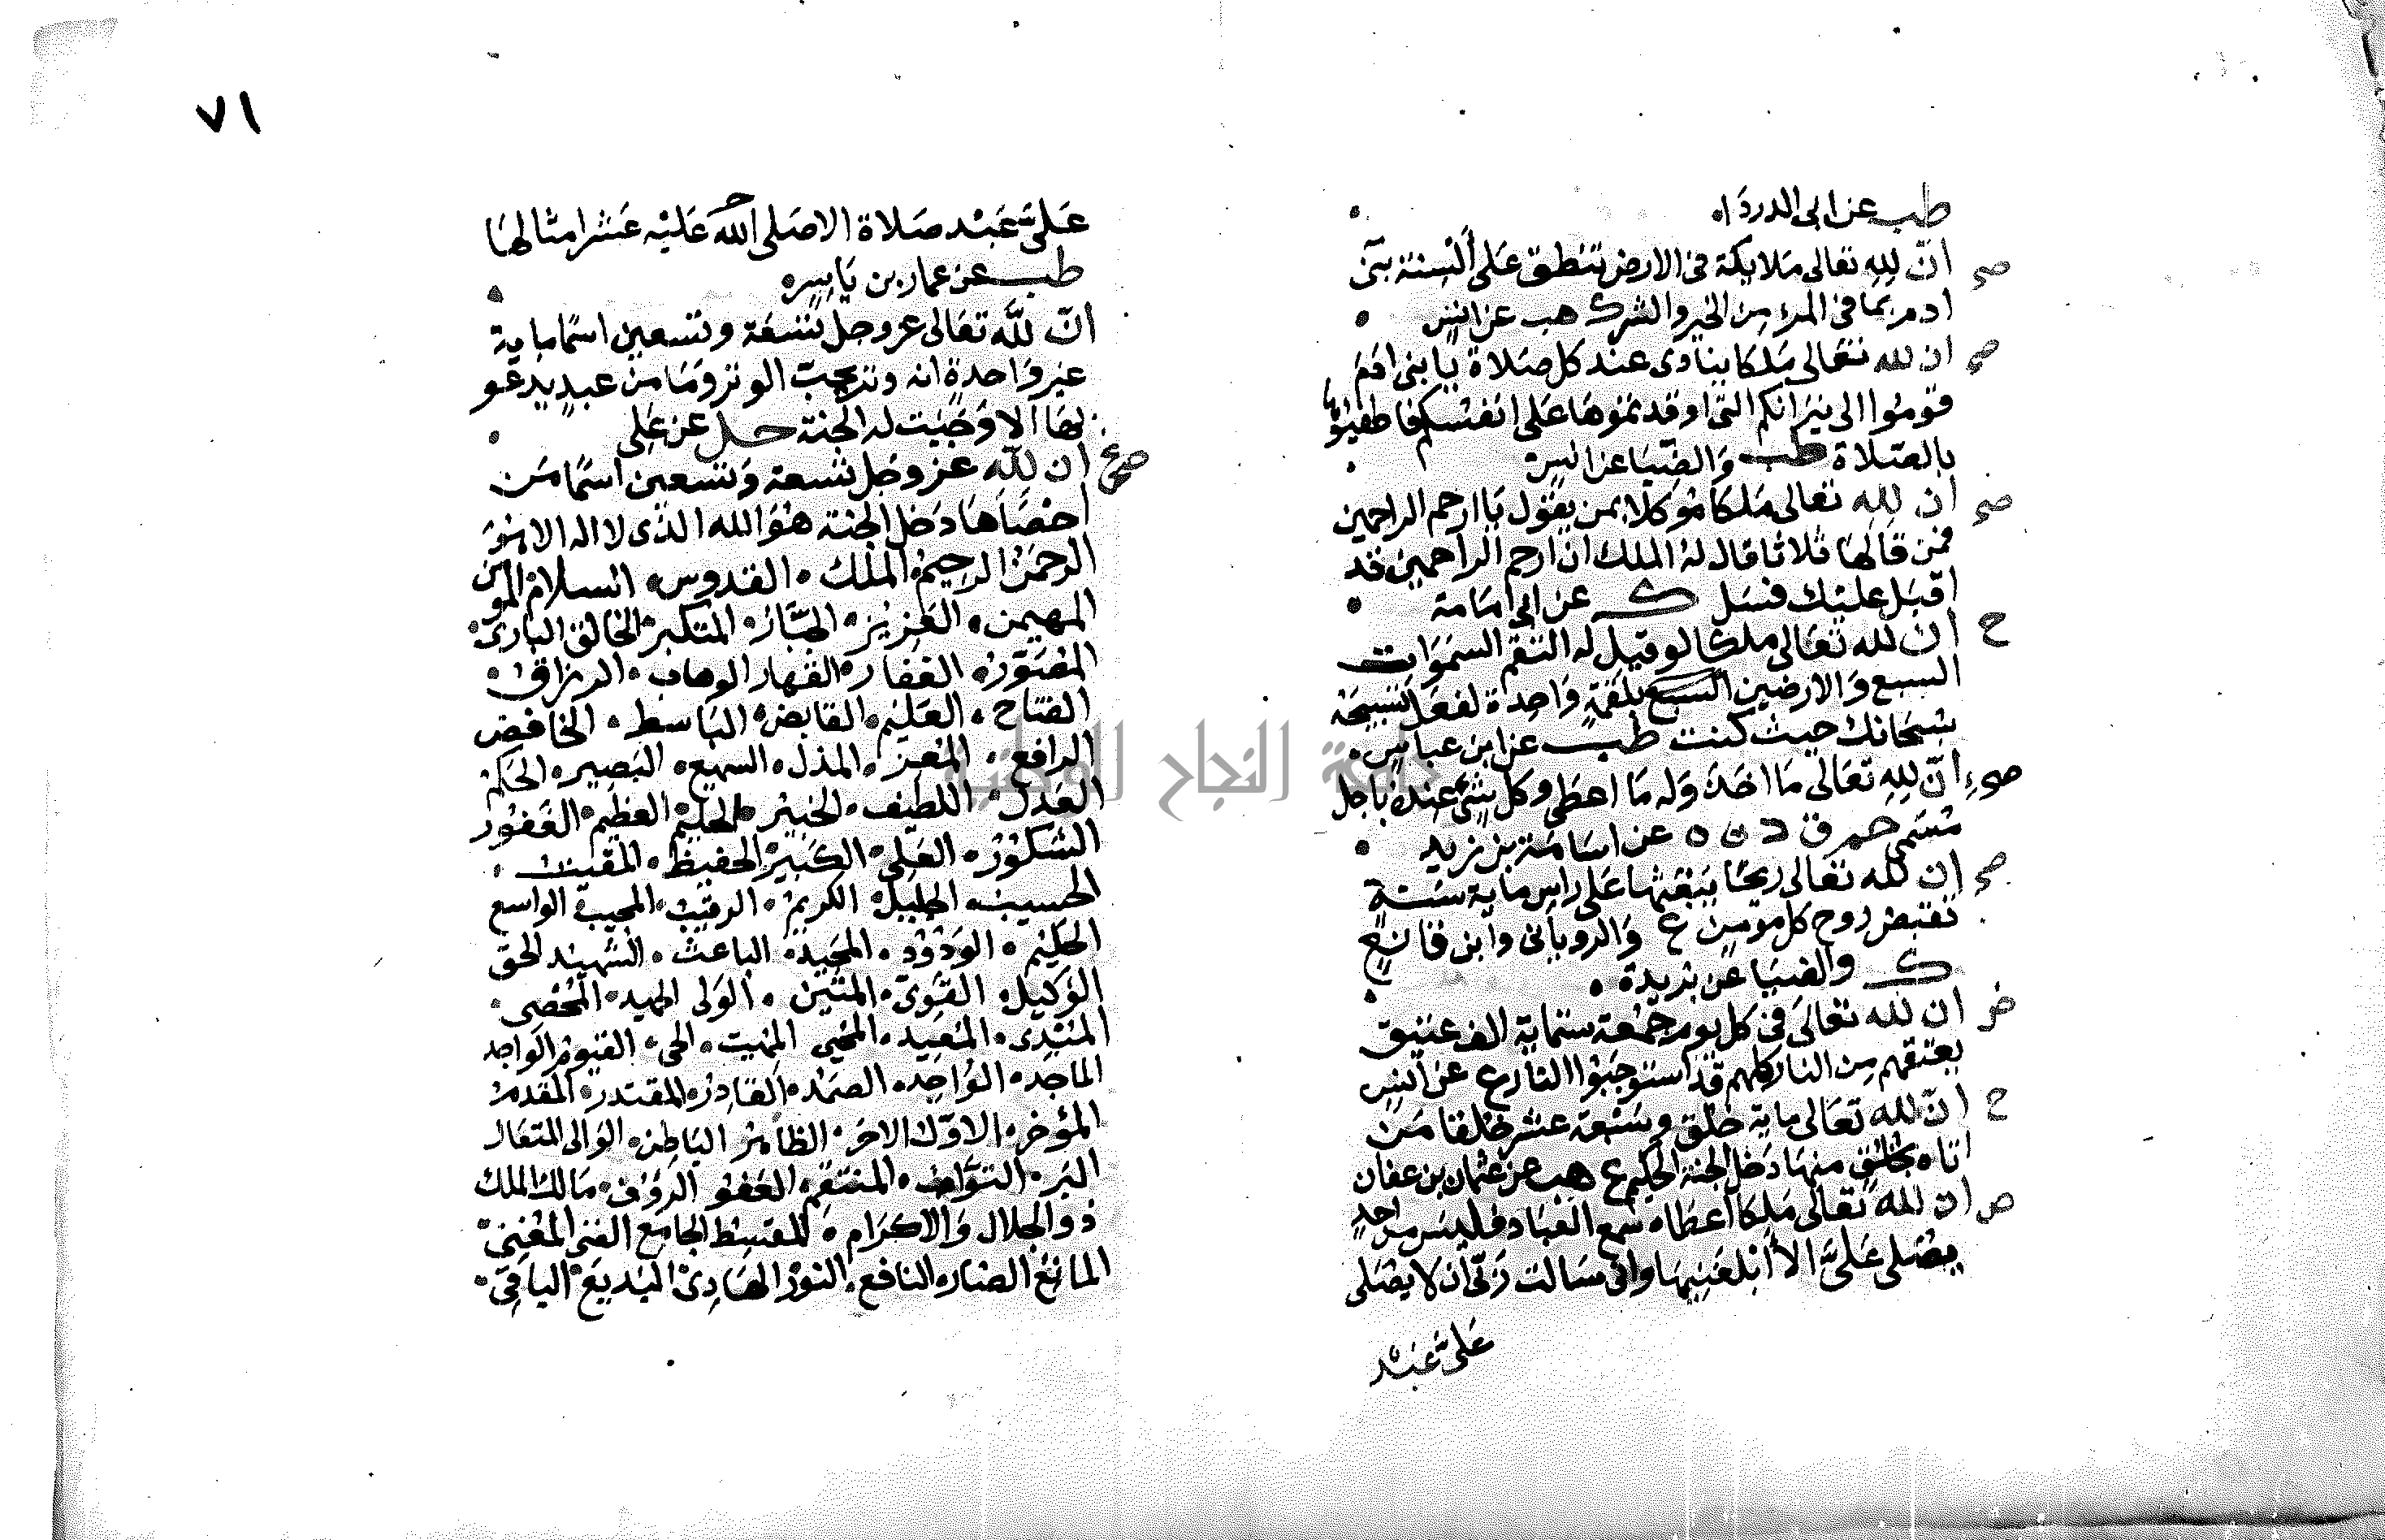 طب عن ابى الدرداء
صح ان لله تعالى ملايكة فى الارض تنطق على ألسنة بنى
ادم بما فى المرء من الخير والشرك هب عن انس
صح ان لله تعالى ملكا ينادى عند كل صلاة يا بنى ادم
قوموا الى نيرانكم التى اوقدتموها على انفسكم فاطفيوها
بالصلاة طب والضيا عن انس
صح ان لله تعالى ملكا موكلا بمن يقول يا ارحم الراحمين
فمن قالها ثلاثا قال له الملك ان ارحم الراحمين قد
اقبل عليك فسل ك عن ابى امامة
ح ان لله تعالى ملكا لو قيل له التقم السموات
السبع والارضين السبع بلقمة واحدة لفعل تسبيحه
سبحانك حيث كنت طب عن ابن عباس
صح ان لله تعالى ما اخذ وله ما اعطى وكل شئ عنده باجل
مسمى حم ق د ن ه عن اسامة بن زيد
صح ان لله تعالى ريحا يبعثها على راس ماية سنة
تقبض روح كل مومن ع والرويانى وابن قانع
ك والضيا عن بريدة
ض ان لله تعالى فى كل يوم جمعة ستماية الف عتيق
يعتقهم من النار كلهم قد استوجبوا النار ع عن انس
ح ان لله تعالى ماية خلق وسبعة عشر خلقا من
اتاه بخلق منها دخل الجنة الحكيم ع هب عن عثمان بن عفان
ص ان لله تعالى ملكا اعطاه سمع العباد فليس من احد
يصلى على الا أبلغنيها وانى سالت ربى ان لا يصلى
على عبد
٧١
على عبد صلاة الا صلى الله عليه عشر امثالها
طب عن عمار بن ياسر
ان لله تعالى عز وجل تسعة وتسعين اسما ماية
غير واحدة انه وتر يحب الوتر وما من عبد يدعو
بها الا وجبت له الجنة حل عن على
صح ان لله عز وجل تسعة وتسعين اسما من
احصاها دخل الجنة هو الله الذى لا اله الا هو
الرحمن الرحيم الملك القدوس السلام المومن
المهيمن العزيز الجبار المتكبر الخالق البارئ
المصور الغفار القهار الوهاب الرزاق
الفتاح العليم القابض الباسط الخافض
الرافع المعز المذل السميع البصير الحكم
العدل اللطيف الخبير الحليم العظيم الغفور
الشكور العلى الكبير الحفيظ المقيت
الحسيب الجليل الكريم الرقيب المجيب الواسع
الحكيم الودود المجيد الباعث الشهيد الحق
الوكيل القوى المتين الولى الحميد المحصى
المبتدى المعيد المحيى المميت الحى القيوم الواجد
الماجد الواحد الصمد القادر المقتدر المقدم
المؤخر الاول الاخر الظاهر الباطن الوالى المتعال
البر التواب المنتقم العفو الرؤف مالك الملك
ذو الجلال والاكرام المقسط الجامع الغنى المغنى
المانع الضار النافع النور الهادى البديع الباقى
جامعة النجاح الوطنية